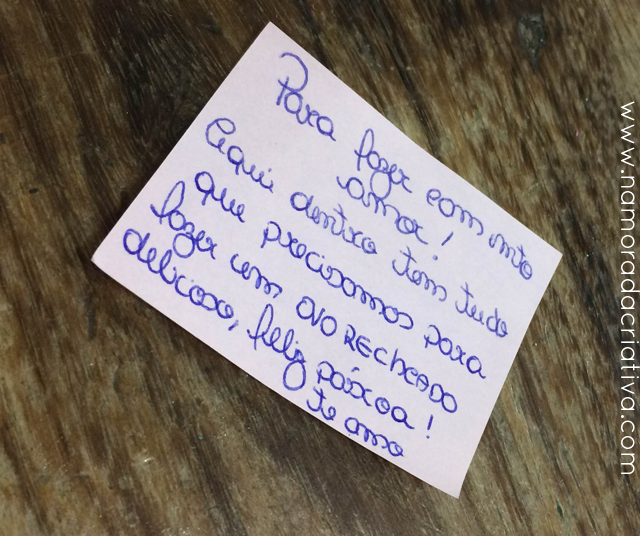 Para fazer com mto
amor!
Aqui dentro tem tudo
que precisamos para
fazer um OVO RECHEADO
delicioso, feliz páscoa!
te amo
www.namoradacriativa.com